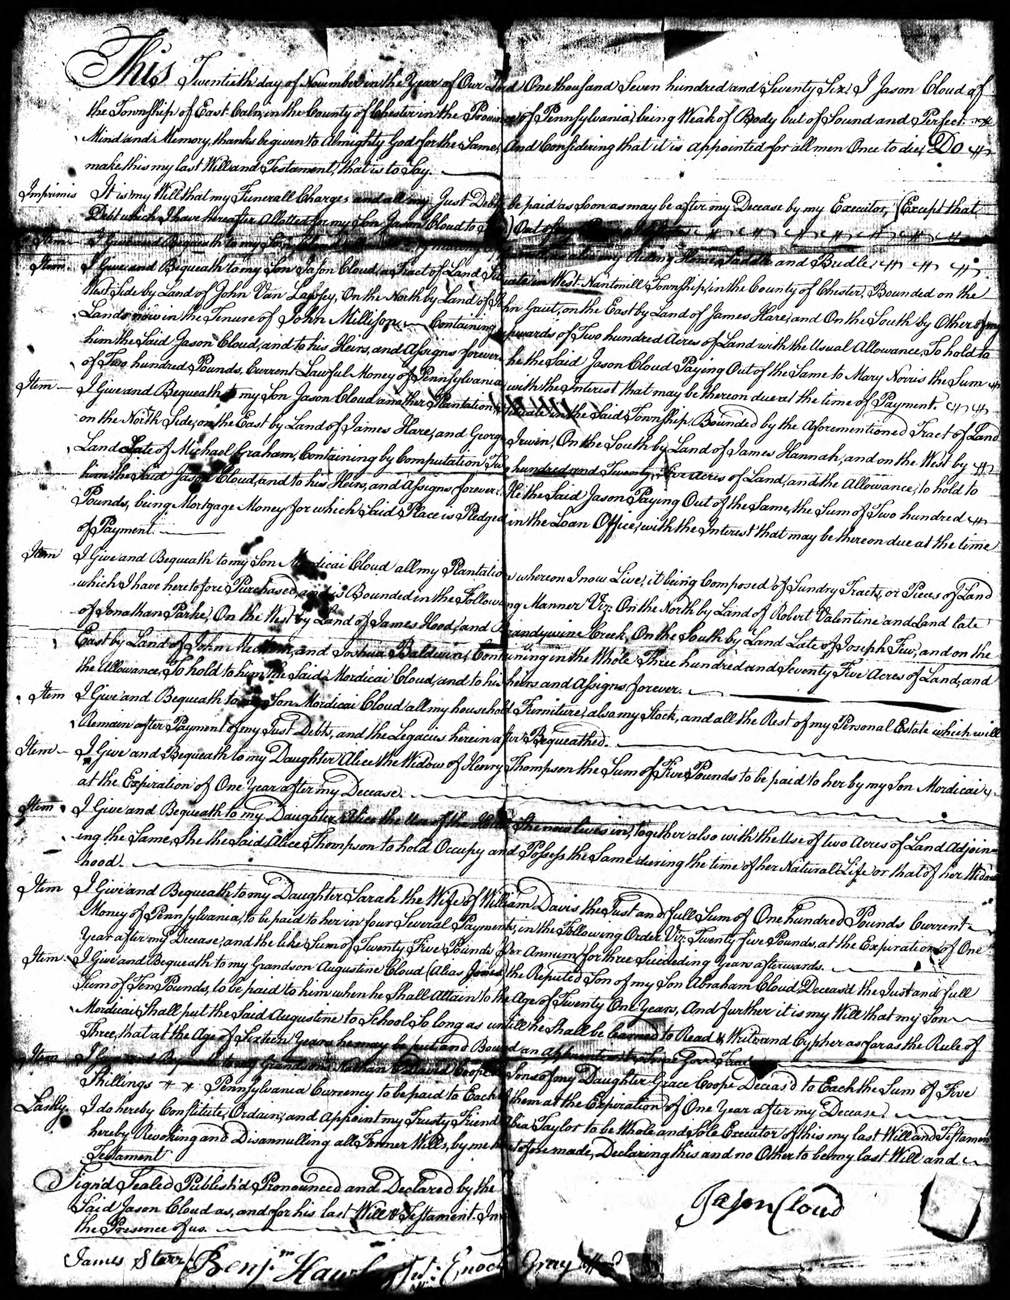 This Twentieth day of November in the Year of Our Lord One thousand Seven hundred and Seventy Six I Jason Cloud of
the Township of East Caln, in the County of Chester in the Province of Pennsylvania, being Weak of Body but of Sound and Perfect
Mind and Memory, thanks be given to Almighty God for the Same, And Considering that it is appointed for all men Once to die, Do
make this my last Will and Testament, that is to Say.
Imprimis It is my Will that my Funerall Charges and all my Just Debts be paid as Soon as may be after my Decease by my Executor, (Except that
Debt which I have hereafter Allotted for my Son Jason Cloud to ) Out of my
Item I Give and Bequeath to my Son my Riding Horse Saddle and Bridle
Item I Give and Bequeath to my Son Jason Cloud, a Tract of Land Situate in West Nantmell Township, in the County of Chester, Bounded on the
West Side by Land of John Van Lassey, On the North by Land of John Gaut, on the East by Land of James Hare, and On the South by Other of my
Lands now in the Tenure of John Millison Containing upwards of Two hundred Acres of Land with the Usual Allowance, To hold to
him the Said Jason Cloud, and to his Heirs, and Assigns forever, he the Said Jason Cloud Paying Out of the Same to Mary Norris the Sum
of Two hundred Pounds, Current Lawful Money of Pennsylvania, with the Interest that may be thereon due at the time of Payment.
Item I Give and Bequeath to my Son Jason Cloud another Plantation, Situate in the Said Township, Bounded by the Aforementioned Tract of Land
on the North Side, on the East by Land of James Hare, and George Irwin, On the South by Land of James Hannah, and on the West by
Land Late of Michael Graham, Containing by Computation Two hundred and Twenty Five Acres of Land, and the Allowance, to hold to
him the Said Jason Cloud, and to his Heirs, and Assigns forever. He the Said Jason Paying Out of the Same, the Sum of Two hundred
Pounds, being Mortgage Money for which Said Place is Pledged in the Loan Office, with the Interest that may be thereon due at the time
of Payment.
Item I Give and Bequeath to my Son Mordicai Cloud all my Plantation whereon I now Live; it being Composed of Sundry Tracts, or Pieces of Land
which I have heretofore Purchased, and is Bounded in the Following Manner Viz: On the North by Land of Robert Valentine and Land late
of Jonathan Parke, On the West by Land of James Hood, and Brandywine Creek, On the South by Land Late of Joseph Few, and on the
East by Land of John and Joshua Baldwin, Containing in the Whole Three hundred and Seventy Five Acres of Land, and
the Allowance, To hold to him the Said Mordicai Cloud, and to his heirs and Assigns forever.
Item I Give and Bequeath to my Son Mordicai Cloud all my household Furniture, also my Stock, and all the Rest of my Personal Estate which will
Remain after Payment of my Just Debts, and the Legacies herein after Bequeathed.
Item I Give and Bequeath to my Daughter Alice the Widow of Henry Thompson the Sum of Five Pounds to be paid to her by my Son Mordicai
at the Expiration of One Year after my Decease.
Item I Give and Bequeath to my Daughter Alice the Use of the House She now lives in, together also with the Use of two Acres of Land Adjoin=
ing the Same, She the Said Alice Thompson to hold Occupy and Possess the Same during the time of her Natural Life or that of her Widow
hood.
Item I Give and Bequeath to my Daughter Sarah the Wife of William Davis the Just and full Sum of One hundred Pounds Current
Money of Pennsylvania, to be paid to her in four Several Payments, in the Following Order Viz: Twenty five Pounds, at the Expiration of One
Year after my Decease, and the like Sum of Twenty Five Pounds Per Annum for three Succeeding Years afterwards.
Item I Give and Bequeath to my Grandson Augustine Cloud (Alias Jones) the Reputed Son of my Son Abraham Cloud Deceas'd the Just and full
Sum of Ten Pounds, to be paid to him when he Shall Attain to the Age of Twenty One Years, And further it is my Will that my Son
Mordicai Shall put the Said Augustine to School So long as untill he Shall be learned to Read & Write and Cypher as far as the Rule of
Three, that at the Age of Sixteen Years he may be put and Bound an Apprentice to Some Good Trade
Item I Give and Bequeath to my Grandsons Nathan Coope Sons of my Daughter Grace Coope Deceas'd to Each the Sum of Five
Shillings Pennsylvania Currency to be paid to Each of them at the Expiration of One Year after my Decease
Lastly I do hereby Constitute, Ordain, and Appoint my Trusty Friend Abia Taylor to be Whole and Sole Executor of this my last Will and Testament
hereby Revoking and Disannulling all Former Wills, by me heretofore made, Declaring this and no Other to be my last Will and
Testament
Sign'd Sealed Publish'd Pronounced and Declared by the
Said Jason Cloud as, and for his last Will & Testament. In
the Presence of us.
Jason Cloud
James Starr Benjn Hawley Enoch Gray